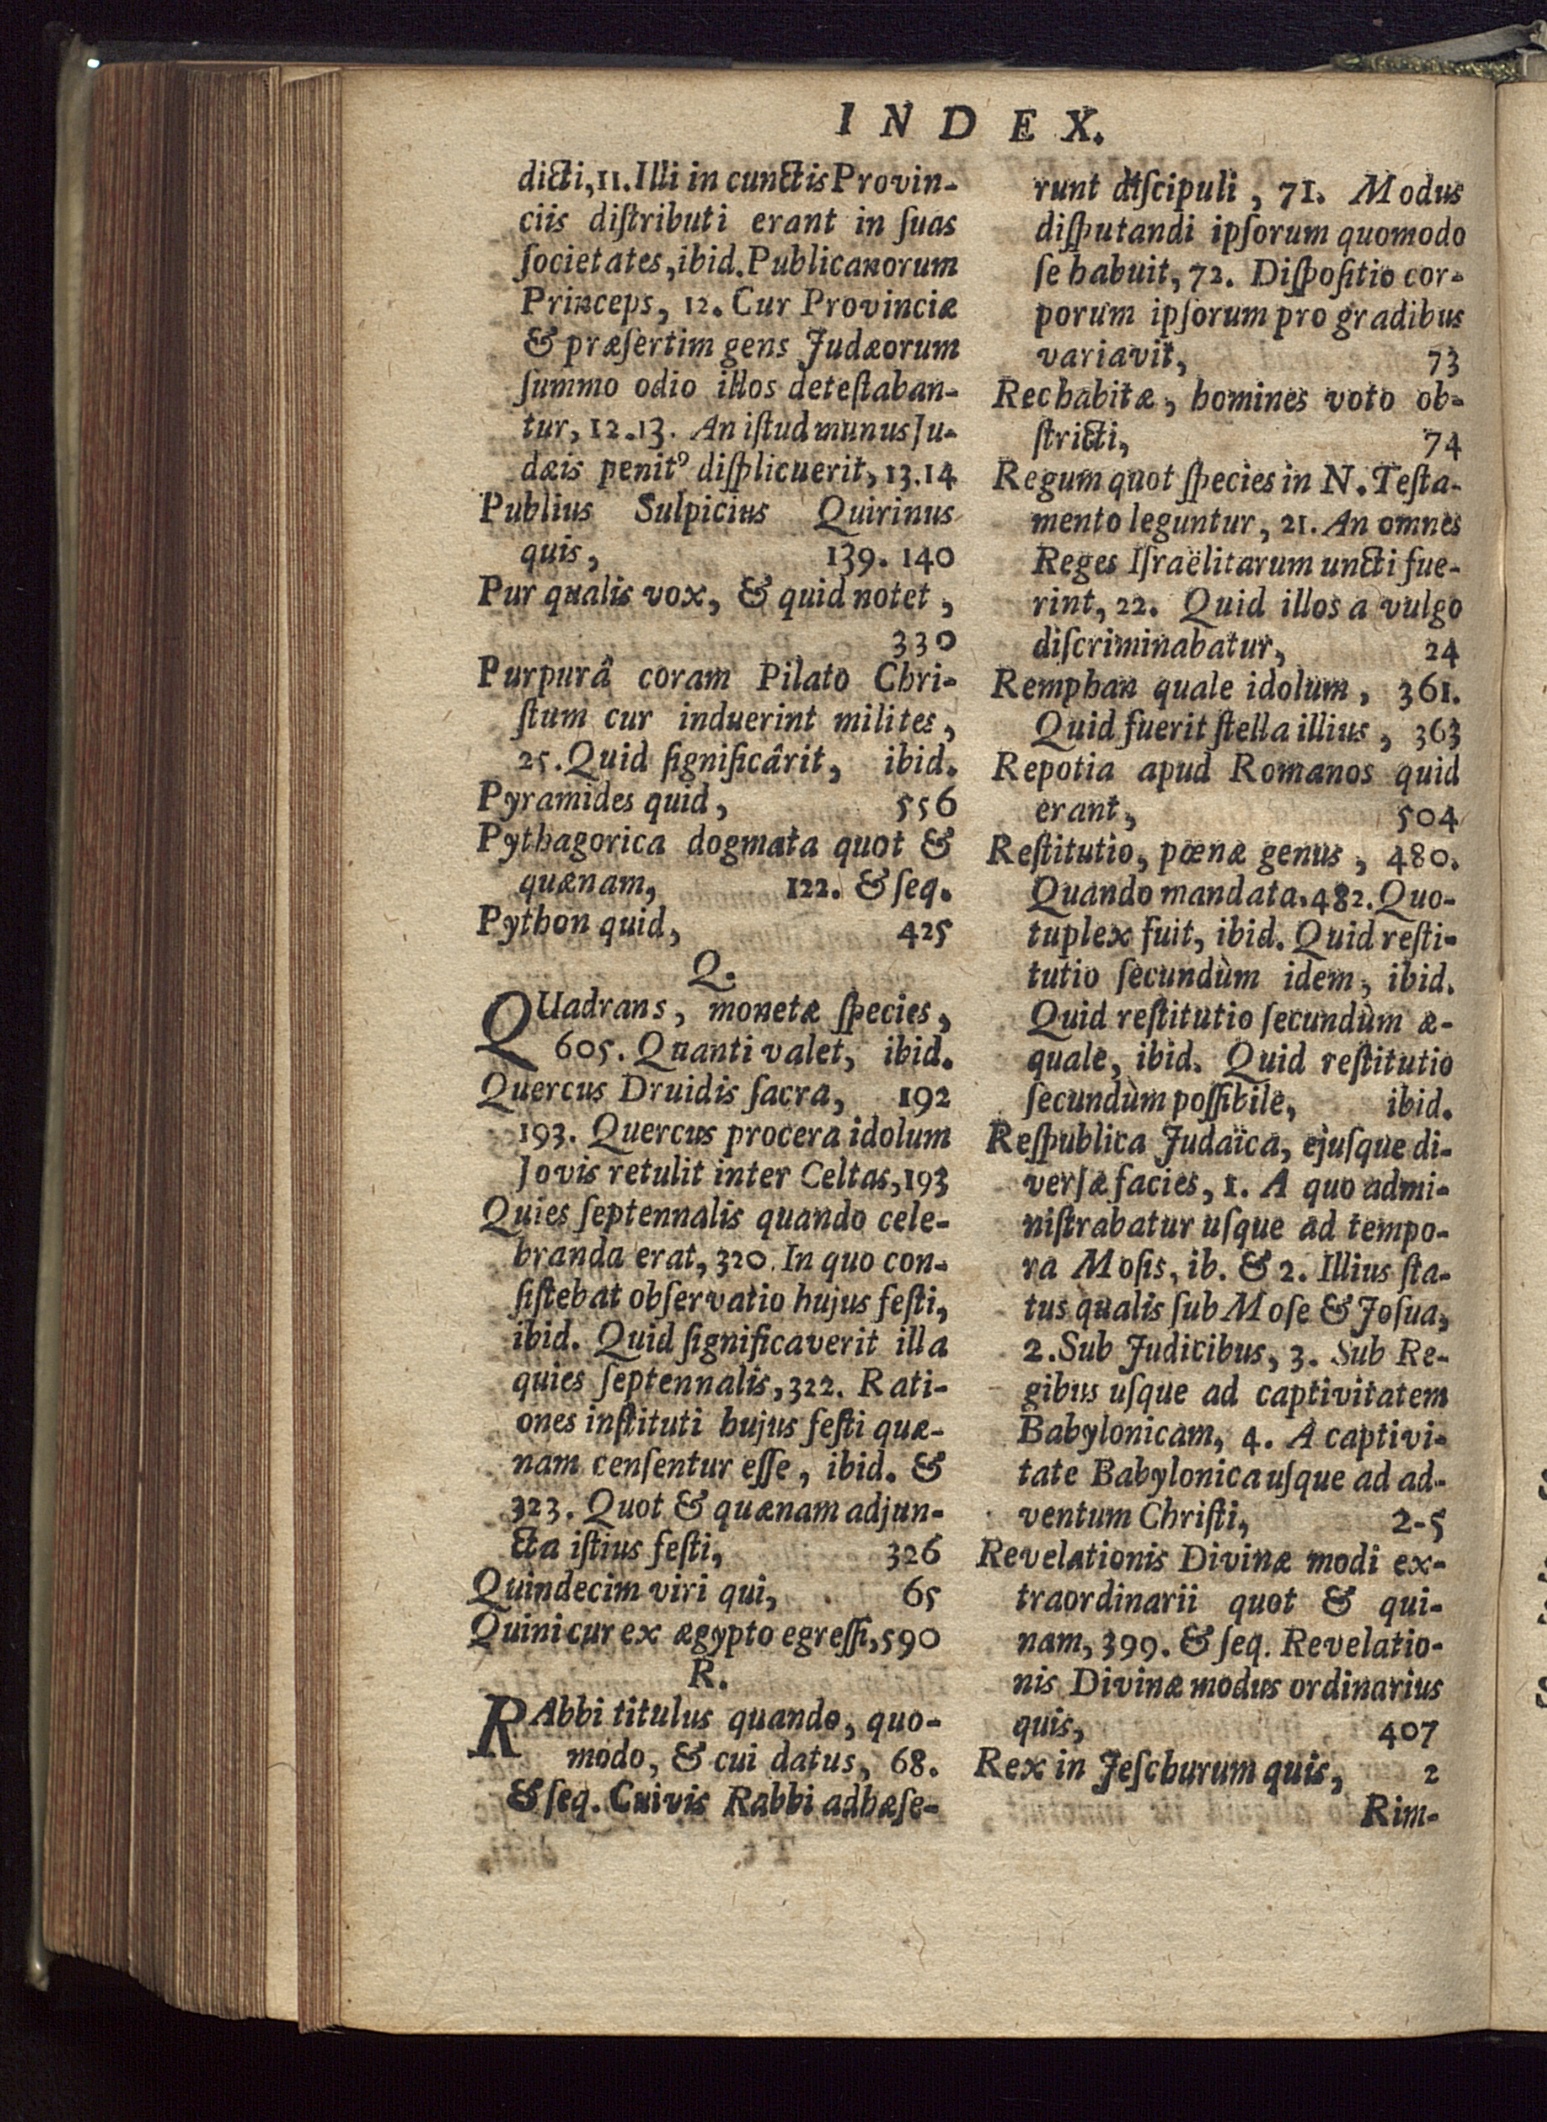 INDEX.
dicti, 11. Illi in cunctis Provin-
ciis diſtributi erant in ſuas
ſocietates, ibid. Publicanorum
Princeps, 12. Cur Provinciæ
& præſertim gens Judæorum
ſummo odio illos deteſtaban-
tur, 12.13. An iſtud munus Ju-
dæis penitꝰ diſplicuerit, 13.14
Publius Sulpicius Quirinus
quis, 139. 140
Pur qualis vox, & quid notet,
330
Purpurâ coram Pilato Chri-
ſtum cur induerint milites,
25. Quid ſignificârit, ibid.
Pyramides quid, 556
Pythagorica dogmata quot &
quænam, 122. & ſeq.
Python quid, 425
Q.
QUadrans, monetæ ſpecies,
605. Quanti valet, ibid.
Quercus Druidis ſacra, 192
193. Quercus procera idolum
Jovis retulit inter Celtas, 193
Quies ſeptennalis quando cele-
branda erat, 320. In quo con-
ſiſtebat obſervatio hujus feſti,
ibid. Quid ſignificaverit illa
quies ſeptennalis, 322. Rati-
ones inſtituti hujus feſti quæ-
nam cenſentur eſſe, ibid. &
323. Quot & quænam adjun-
cta iſtius feſti, 326
Quindecim viri qui, 65
Quini cur ex ægypto egreſſi, 590
R.
RAbbi titulus quando, quo-
modo, & cui datus, 68.
& ſeq. Cuivis Rabbi adhæſe-
runt diſcipuli, 71. Modus
diſputandi ipſorum quomodo
ſe habuit, 72. Diſpoſitio cor-
porum ipſorum pro gradibus
variavit, 73
Rechabitæ, homines voto ob-
ſtricti, 74
Regum quot ſpecies in N. Teſta-
mento leguntur, 21. An omnes
Reges Iſraëlitarum uncti fue-
rint, 22. Quid illos a vulgo
diſcriminabatur, 24
Remphan quale idolum, 361.
Quid fuerit ſtella illius, 363
Repotia apud Romanos quid
erant, 504
Reſtitutio, pœnæ genus, 480.
Quando mandata, 482. Quo-
tuplex fuit, ibid. Quid reſti-
tutio ſecundùm idem, ibid.
Quid reſtitutio ſecundùm æ-
quale, ibid. Quid reſtitutio
ſecundùm poſſibile, ibid.
Reſpublica Judaïca, ejuſque di-
verſæ facies, 1. A quo admi-
niſtrabatur uſque ad tempo-
ra Moſis, ib. & 2. Illius ſta-
tus qualis ſub Moſe & Joſua,
2. Sub Judicibus, 3. Sub Re-
gibus uſque ad captivitatem
Babylonicam, 4. A captivi-
tate Babylonica uſque ad ad-
ventum Chriſti, 2-5
Revelationis Divinæ modi ex-
traordinarii quot & qui-
nam, 399. & ſeq. Revelatio-
nis Divinæ modus ordinarius
quis, 407
Rex in Jeſchurum quis, 2
Rim-